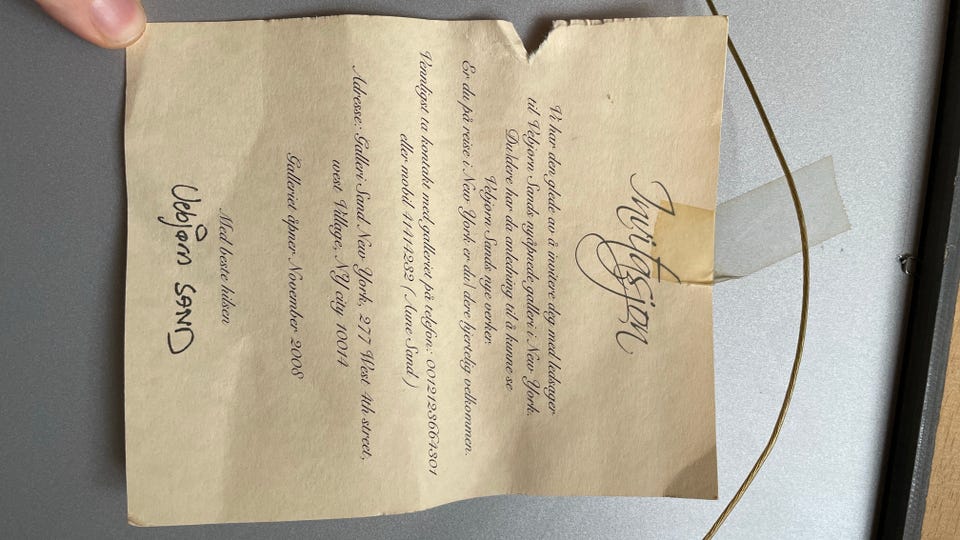 Invitasjon
Vi har den glede av å invitere deg med ledsager
til Vebjørn Sands nyåpnede galleri i New York.
Du/dere har da anledning til å kunne se
Vebjørn Sands nye verker.
Er du på reise i New York er du/ dere hjertelig velkommen.
Vennligst ta kontakt med galleriet på telefon: 0012123664301
eller mobil 41414232 ( Aune Sand )
Adresse: Galleri Sand New York, 277 West 4th street,
west Village, NY city 10014
Galleriet åpner November 2008
Med beste hilsen
Vebjørn SAND